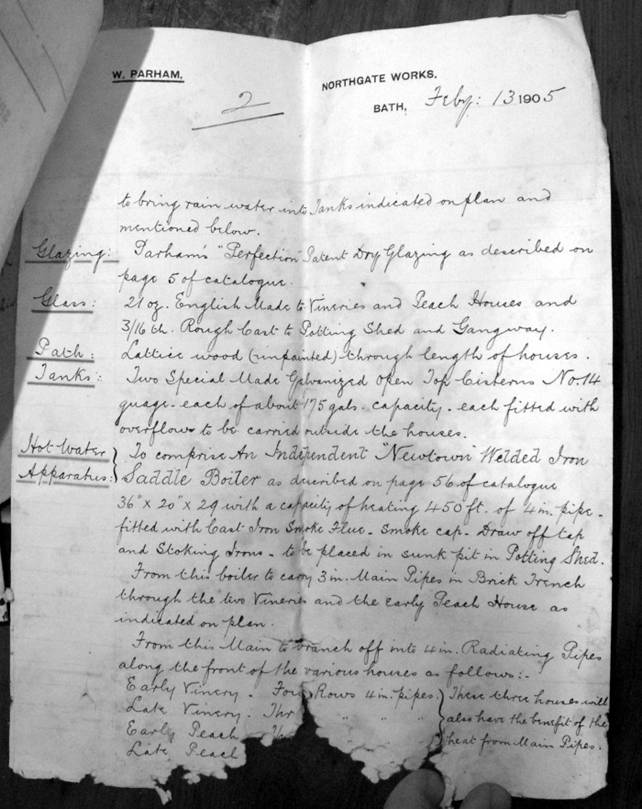 W. PARHAM.
NORTHGATE WORKS.
2
BATH, Feby: 13 1905
to bring rain water into Tanks indicated on plan and
mentioned below.
Glazing: Parham's "Perfection" Patent Dry Glazing as described on
page 5 of catalogue.
Glass: 21 oz. English Made to Vineries and Peach Houses and
3/16 th. Rough Cast to Potting Shed and Gangway.
Path: Lattice wood (unpainted) through length of houses.
Tanks: Two Special Made Galvanized Open Top Cisterns No. 14
guage. each of about 175 gals. capacity. each fitted with
overflows to be carried outside the houses.
Hot Water To comprise An Independent "Newtown" Welded Iron
Apparatus: Saddle Boiler as described on page 56 of catalogue
36" x 20" x 29 with a capacity of heating 450 ft. of 4 in. pipe.
fitted with Cast Iron Smoke Flue. smoke cap. Draw off tap
and Stoking Irons. to be placed in sunk pit in Potting Shed.
From this boiler to carry 3 in. Main Pipes in Brick Trench
through the two Vineries and the early Peach House as
indicated on plan.
From this Main to branch off into 4 in. Radiating Pipes
along the front of the various houses as follows:-
Early Vinery. Four Rows 4 in. pipes. These three houses will
Late Vinery. Thr " " " also have the benefit of the
Early Peach heat from Main Pipes.
Late Peach